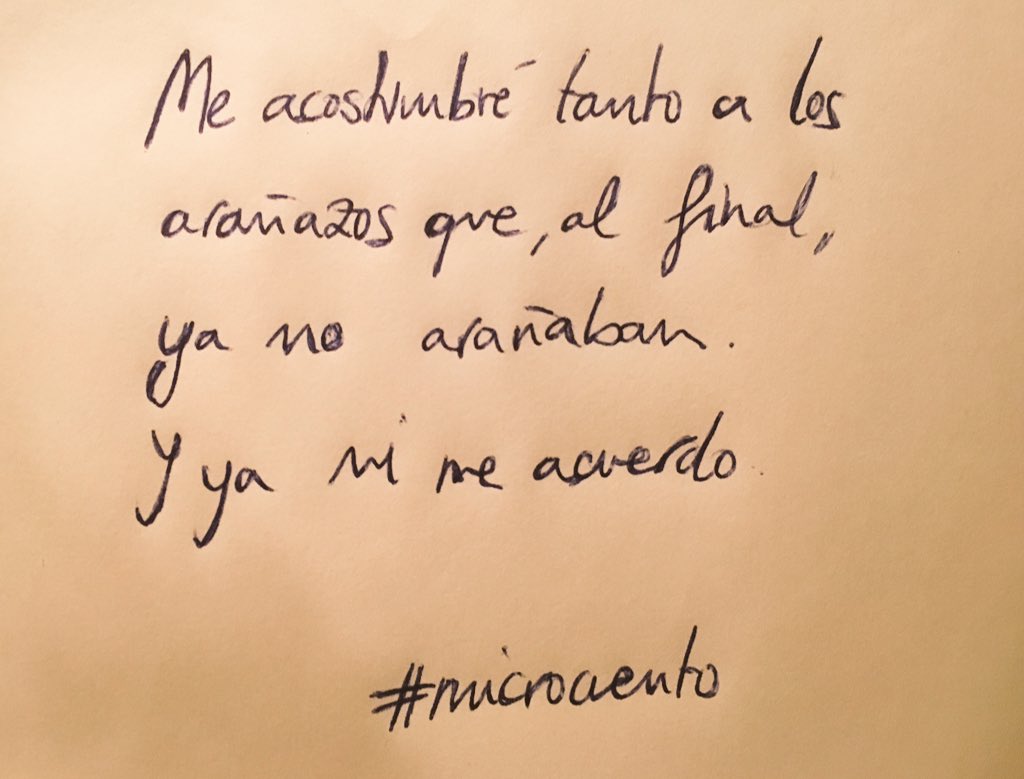 Me acostumbré tanto a los
arañazos que, al final,
ya no arañaban.
Y ya ni me acuerdo.
#microcuento